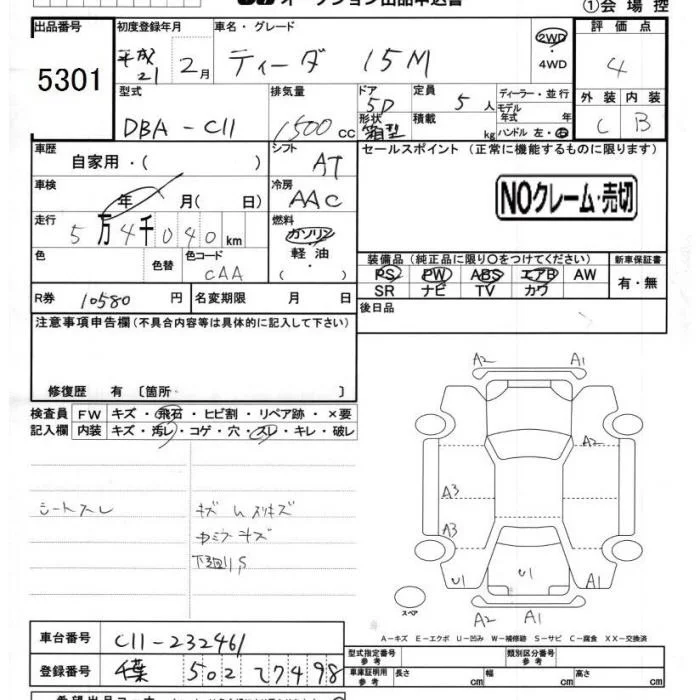 オークション出品申込書 ①会場控
出品番号 5301
初度登録年月 平成21年2月
車名・グレード ティーダ 15M
2WD ・ 4WD
評価点 4
型式 DBA-C11
排気量 1500cc
ドア 5D
形状 箱型
定員 5人
積載 kg
ディーラー・並行
モデル年式 年
ハンドル 左・右
外装 C 内装 B
車歴 自家用・( )
シフト AT
セールスポイント (正常に機能するものに限ります)
車検 年 月( 日)
冷房 AAC
NOクレーム・売切
走行 5万4千040km
燃料 ガソリン・軽油・( )
色 色替 色コード CAA
装備品 (純正品に限り○をつけてください) 新車保証書
PS PW ABS エアB AW 有・無
SR ナビ TV カワ
R券 10580円 名変期限 月 日
後日品
注意事項申告欄 (不具合内容等は具体的に記入して下さい)
修復歴 有〔箇所 〕
検査員 FW キズ・飛石・ヒビ割・リペア跡・×要
記入欄 内装 キズ・汚レ・コゲ・穴・スレ・キレ・破レ
A2 A1
A2
A3
シートスレ キズ
A3
U1 U1 A1
スペア
A2 A1
A-キズ E-エクボ U-凹み W-補修跡 S-サビ C-腐食 XX-交換済
車台番号 C11-232461
型式指定番号 参考 類別区分番号 参考
登録番号 千葉 502 て7498
車庫証明用 参考 長さ cm 幅 cm 高さ cm